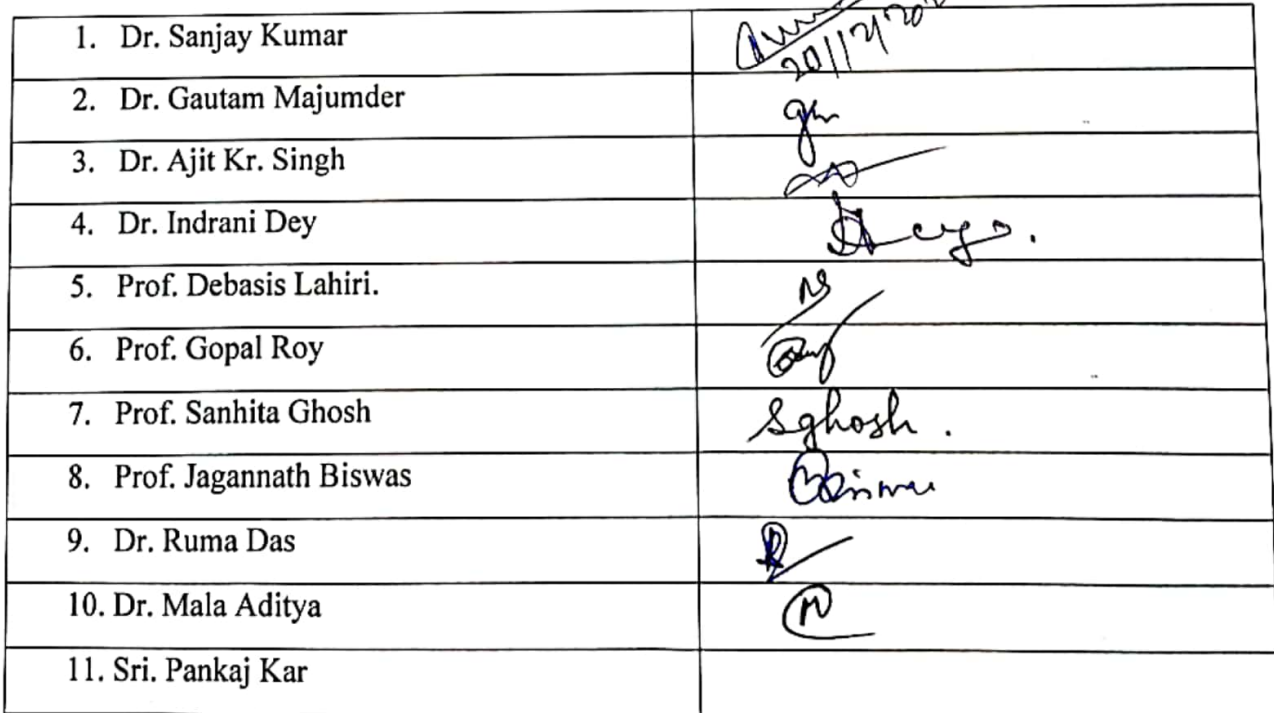 1. Dr. Sanjay Kumar
2. Dr. Gautam Majumder
3. Dr. Ajit Kr. Singh
4. Dr. Indrani Dey
5. Prof. Debasis Lahiri.
6. Prof. Gopal Roy
7. Prof. Sanhita Ghosh Sghosh.
8. Prof. Jagannath Biswas
9. Dr. Ruma Das
10. Dr. Mala Aditya
11. Sri. Pankaj Kar